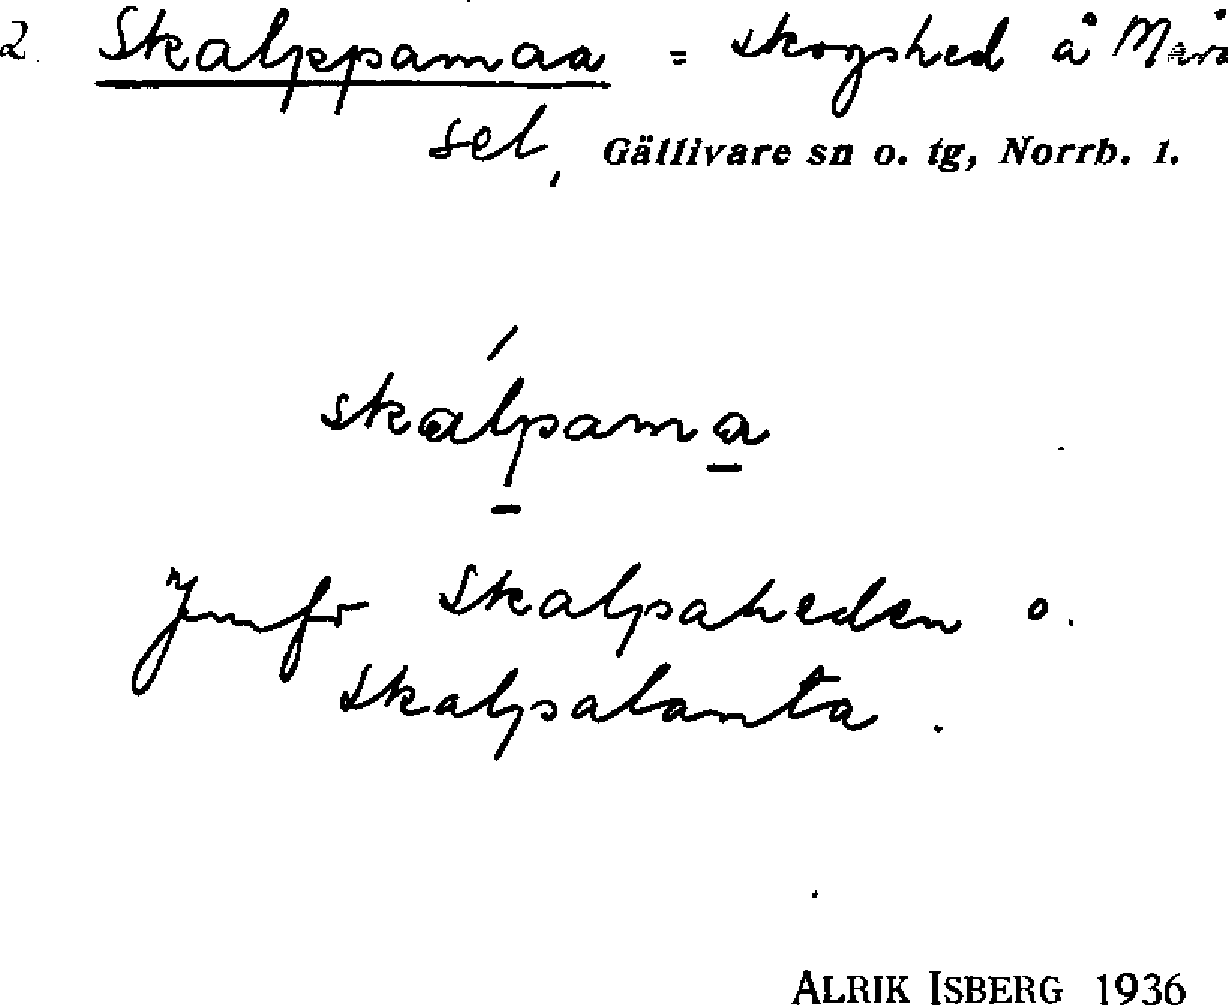 2. Skalppamaa = skogshed å
sel, Gällivare sn o. tg, Norrb. l.
skalpama
Jmfr Skalpaheden o.
Skalpalanta.
ALRIK ISBERG 1936